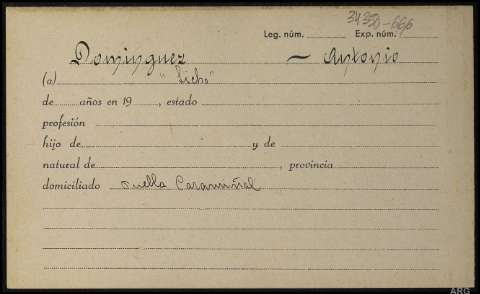 3430-666
Leg. núm. Exp. núm.
Dominguez — Antonio
(a) "Picho"
de años en 19 , estado
profesión
hijo de y de
natural de , provincia
domiciliado Puebla Caramiñal
ARG